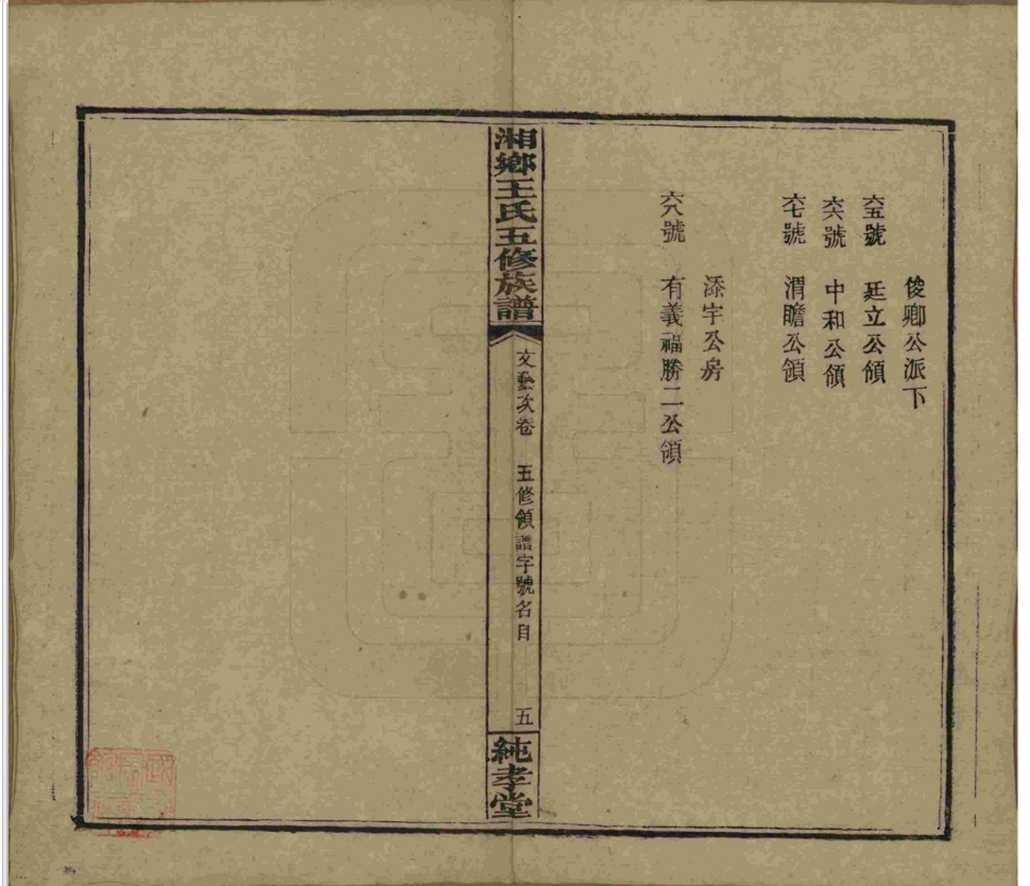 俊卿公派下
六五號 廷立公領
六六號 中和公領
六七號 渭瞻公領
添宇公房
六八號 有義福勝二公領
湘鄉王氏五修族譜
文藝次卷 五修領譜字號名目 五
純孝堂